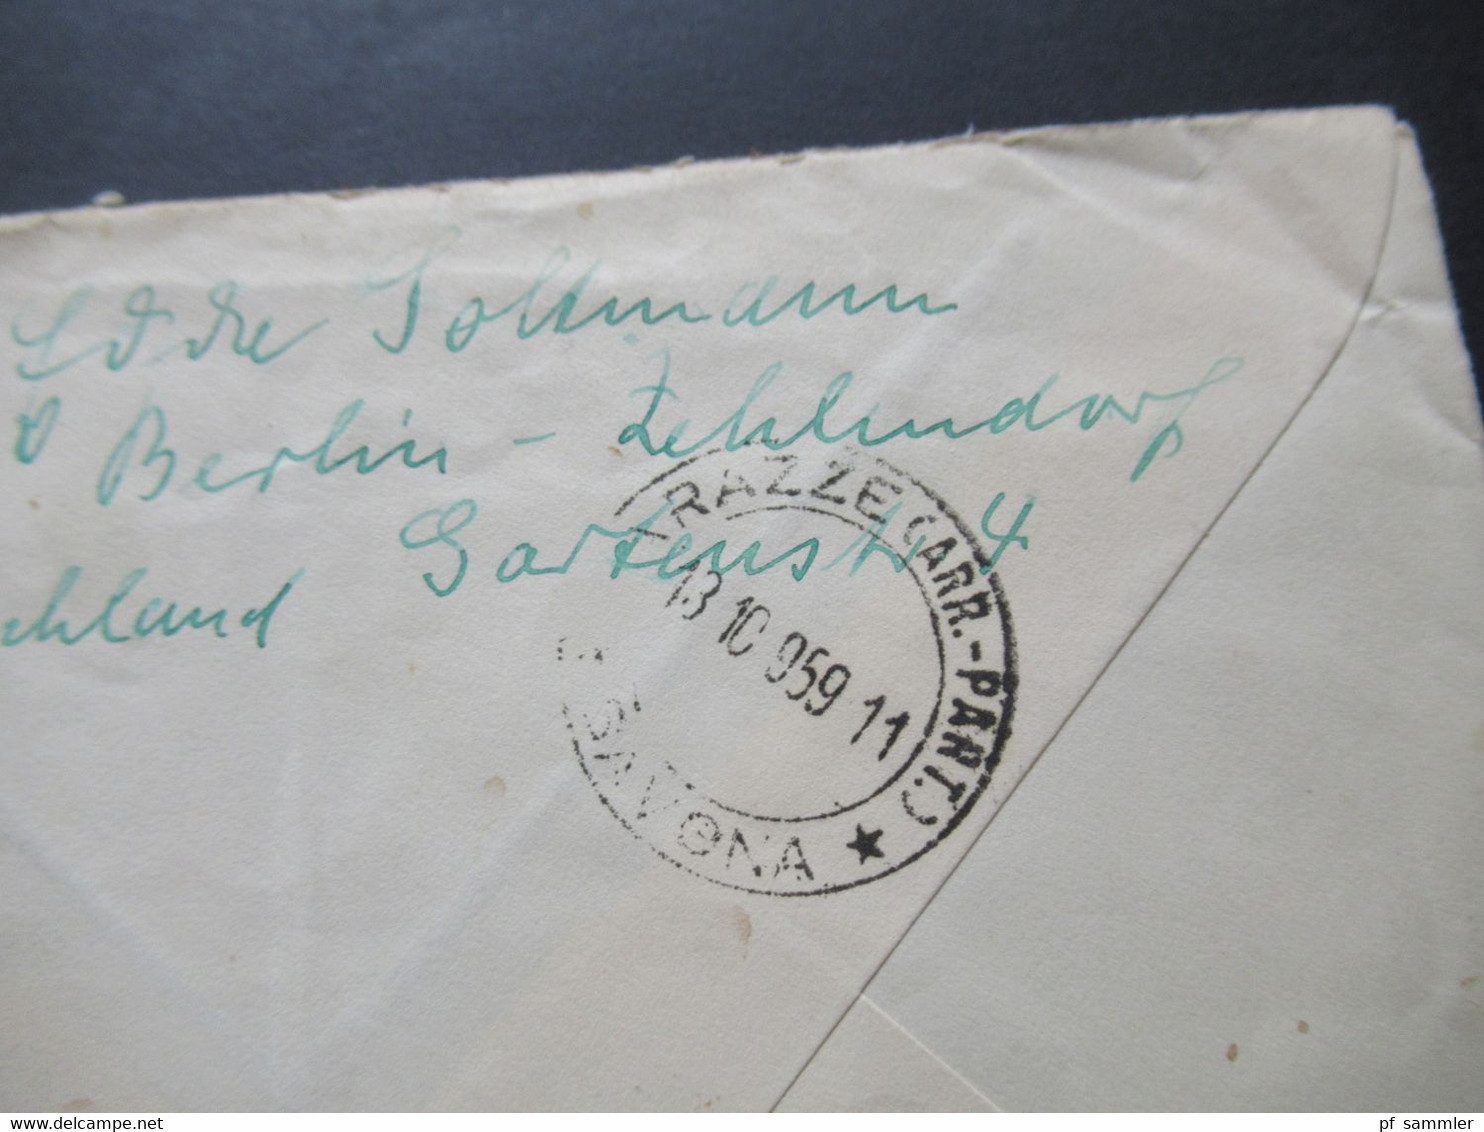 Soltmann
Berlin - Zehlendorf
Gartenstr. 4
chland
RAZZE (ARR.-PART.)
13 10 959 11
SAVONA ★
delcampe.net
pf_sammler